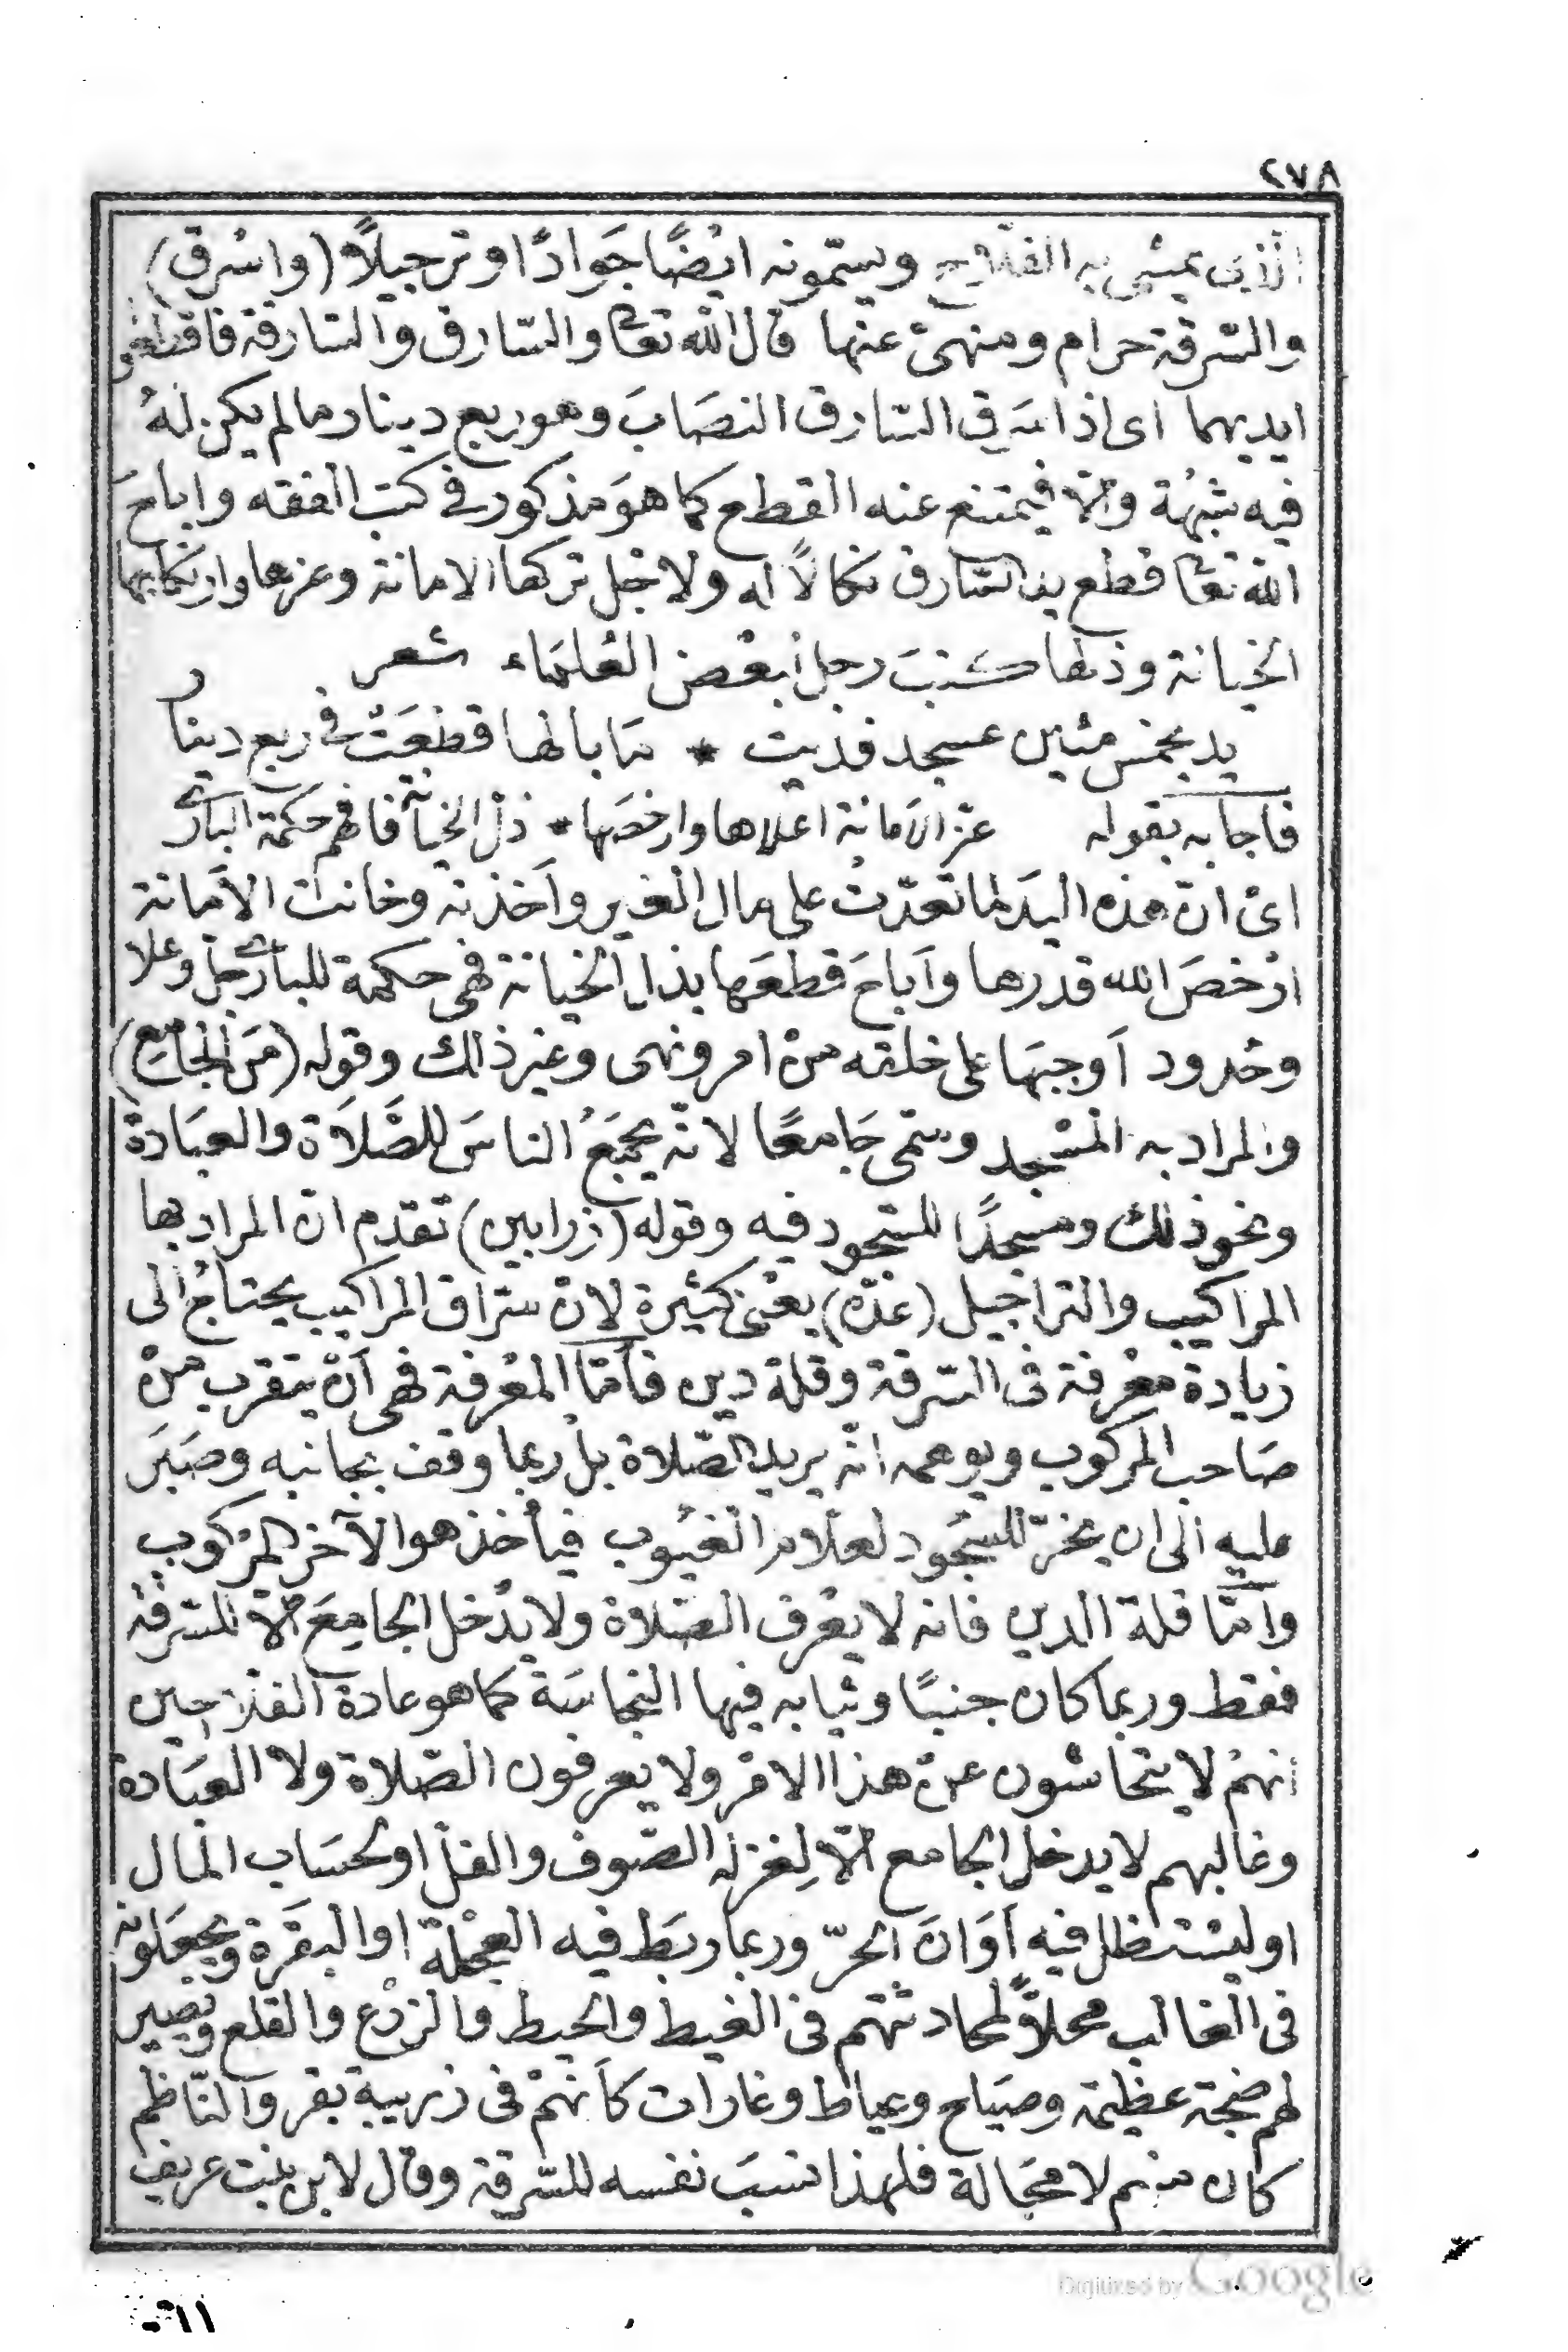 ٢٧٨
الذى يمشى به الفلاح ويسمّونه ايْضًا جَوادًا وترجيلاً (واسْرق)
والسّرقة حرام ومنهىّ عنها قال الله تعا والسّارق والسّارقة فاقطعوا
ايديهما اى اذا سَرق السّارق النصَابَ وهو ربع دينار مالم يكن لهُ
فيه شبْهُة والّا فيمتنع عنه القطع كما هوَ مذكور فى كتب الفقه واباحَ
الله تعا قطع يد السّارق نكالاً له ولاجْل تركها الامانة وعزها وارتكابها
الخيانة وذلها كتبَ رجل لبعْض العُلمَاء شعر
يد بخمس مئين عسجد فديت * مَا بالها قطعَتْ فى ربع دينار
فاجابه بقوله عزّ الاَمانة اعْلاها وارخصَها * ذلّ الخيانة فافهم حكمة البارى
اىْ انّ هذه اليَد لما تعَدّتْ على مال الغير واَخذته وخانت الاَمانة
ارْخصَ الله قدرها واَباحَ قطعَها بذل الخيانة فهى حكمة للبارى جلّ وعلا
وحُدود اَوجبَها على خلقه منْ امر ونهى وغير ذلك وقوله (مَن الجَامع)
والمراد به المسْجد وسمّى جَامعًا لانّه يجمَعُ الناسَ للصَّلاَة والعبَادة
ونحو ذلك ومسجدًا للسّجود فيه وقوله (زرابين) تقدم انّ المراد بها
المراكيب والتراجيل (عدّه) يعْنى كثيرة لانّ سرّاق المراكيب يحتاجُ الى
زيادة معْرفة فى السّرقة وقلة دين فأمّا المعْرفة فهى أنْ يتقرب منْ
صَاحب المركوب ويوهمه انّه يريد الصّلاة بلْ ربما وقف بجانبه وصَبَرَ
عليه الى ان يخرّ للسجُود لعلّام الغيُوب فيأخذ هو الآخر المرْكوب
وأمّا قلة الدين فانه لا يعْرف الصّلاة ولا يدْخل الجامِعَ الّا للسّرقة
فقط وربما كان جنبًا وثيابه فيها النجاسَة كما هو عادة الفلّاحين
انهمْ لا يتحاشون عنْ هذا الامْر ولا يعرفون الصّلاة ولا العبَادة
وغالبهم لا يدخل الجامع الّا لِغزله الصّوف والغزْل اولحسَاب المال
او ليسْتظل فيه اَوَانَ الحرّ وربما ربَط فيه العجْلة او البقَرة ويجعلونه
فى الغالب محلاًّ لمحادثتهم فى الغيط والحيط والزرْع والقلع ويصير
لهم ضجّة عظيمة وصيَاح وعياط وغارات كاَنهمْ فى زريبة بقر والنّاظم
كان منهم لا محَالة فلهذا نسبَ نفسه للسّرقة وقال لابن بنت عريف
Digitized by Google